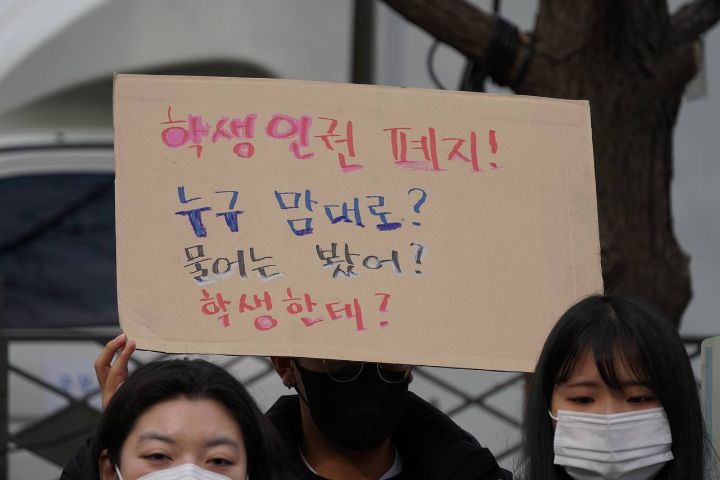 학생인권 폐지!
누구 맘대로?
물어는 봤어?
학생한테?